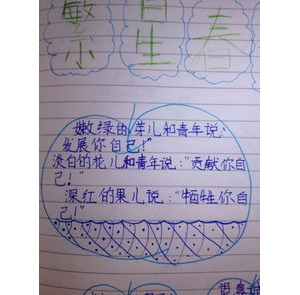 繁星春
嫩绿的芽儿和青年说:
发展你自己!"
淡白的花儿和青年说:"贡献你自
己!"
深红的果儿说:"牺牲你自
己!"